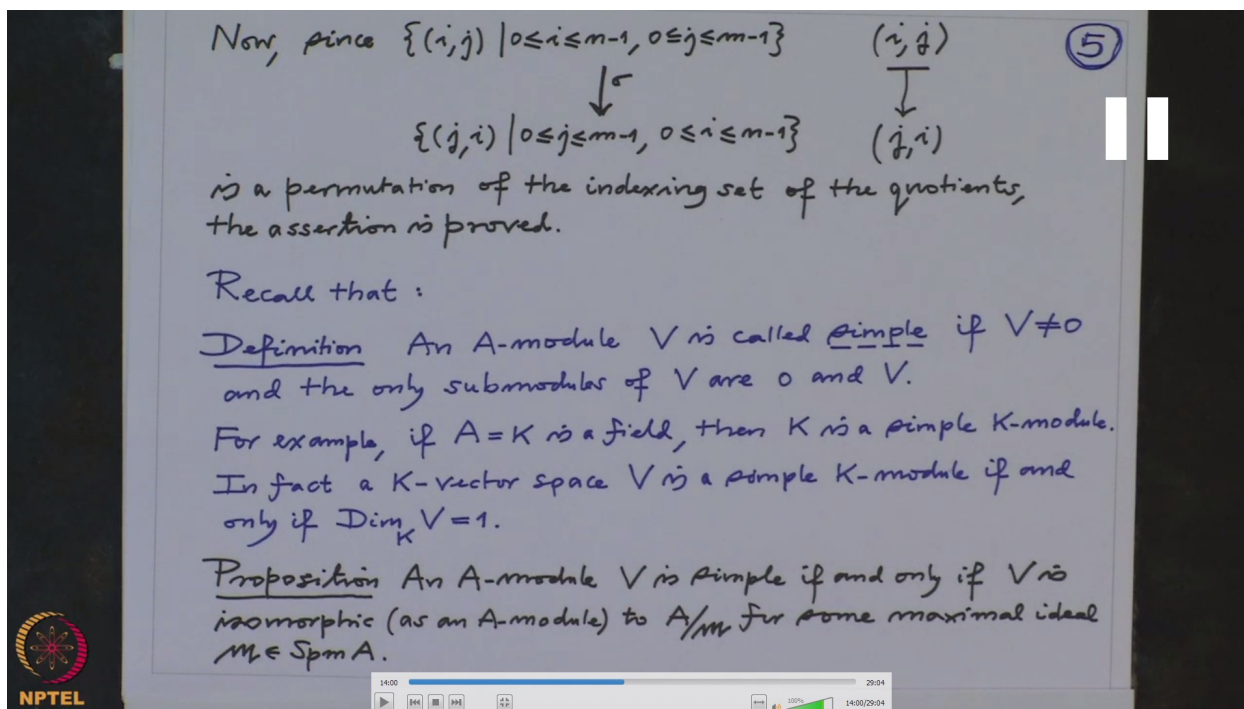 Now, since {(i,j) | 0≤i≤n-1, 0≤j≤m-1} (i,j) 5
↓σ
{(j,i) | 0≤j≤m-1, 0≤i≤n-1} (j,i)
is a permutation of the indexing set of the quotients,
the assertion is proved.
Recall that :
Definition An A-module V is called simple if V≠0
and the only submodules of V are 0 and V.
For example, if A=K is a field, then K is a simple K-module.
In fact a K-vector space V is a simple K-module if and
only if Dim_K V=1.
Proposition An A-module V is simple if and only if V is
isomorphic (as an A-module) to A/𝔪 for some maximal ideal
𝔪 ∈ Spm A.
NPTEL
14:00 29:04
100% 14:00/29:04